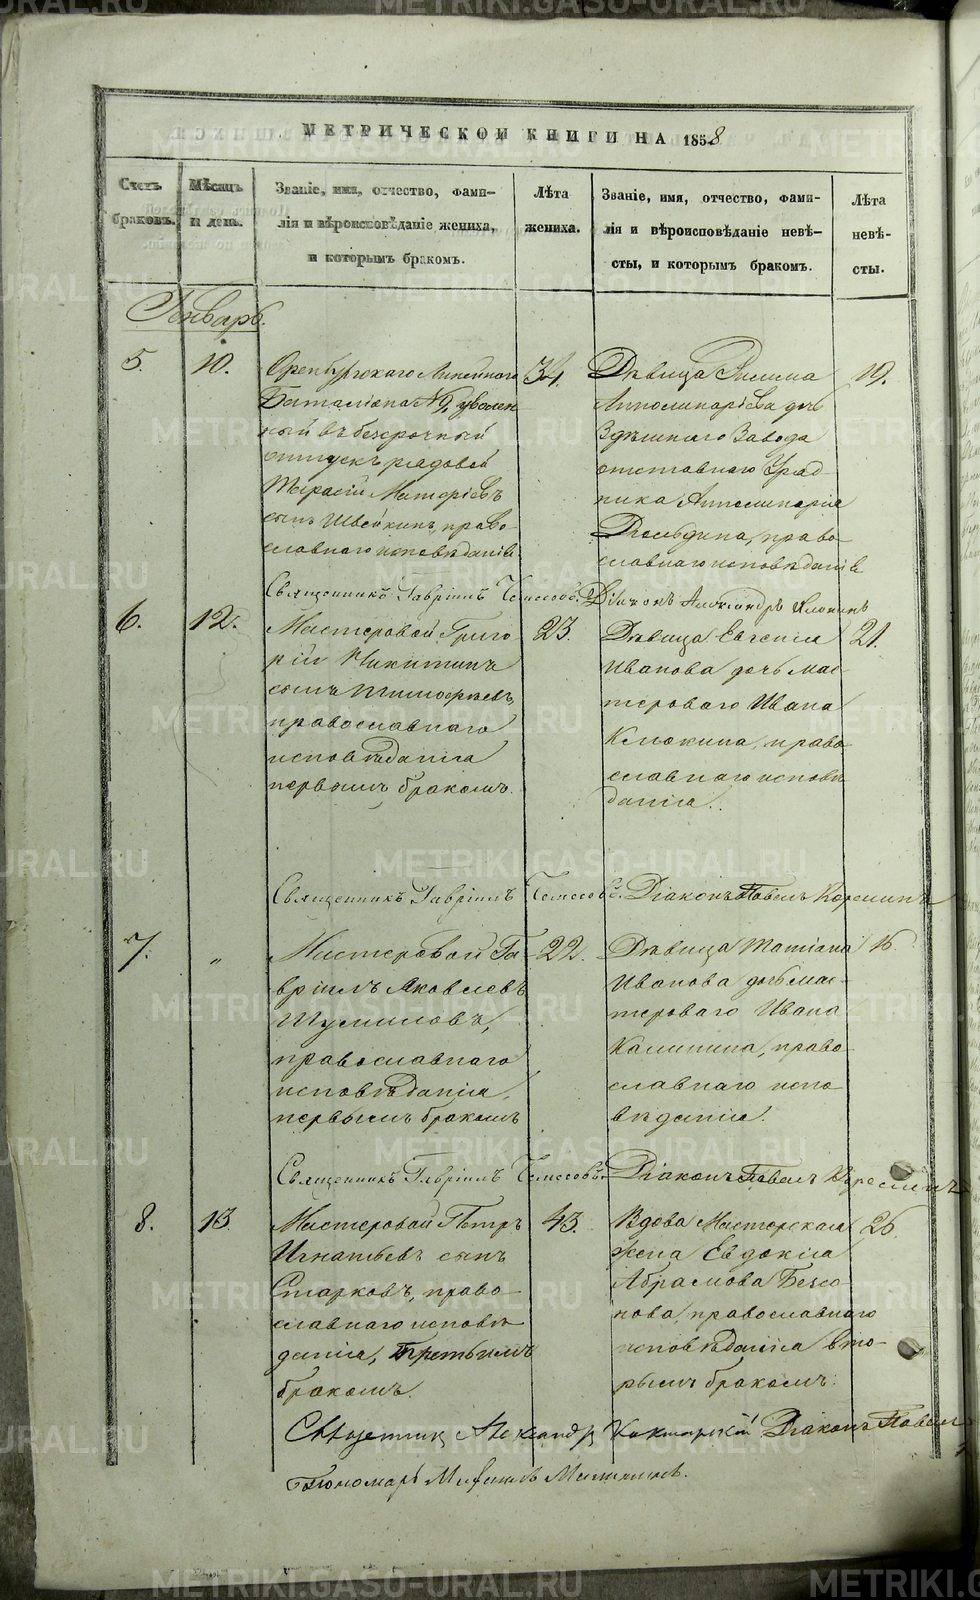 МЕТРИЧЕСКОЙ КНИГИ НА 1858
Счетъ браковъ.
Мѣсяцъ и день.
Званіе, имя, отчество, фами-
лія и вѣроисповѣданіе жениха,
и которымъ бракомъ.
Лѣта
жениха.
Званіе, имя, отчество, фами-
лія и вѣроисповѣданіе невѣ-
сты, и которымъ бракомъ.
Лѣта
невѣ-
сты.
Январь.
5. 10.
Оренбургскаго Линейнаго
Баталіона № 9, уволен
ный въ безсрочный
отпускъ рядовой
сынъ Швейкинъ, право-
славнаго исповѣданія
34.
Дѣвица
Апполинаріева дочь
Здѣшняго Завода
отставнаго Уряд-
ника Апполинарія
право
славнаго исповѣданія
19.
Священникъ Гавріилъ Діаконъ Александръ
6. 12.
Мастеровой Григо
рій Никитинъ
сынъ Тимофѣевъ,
православнаго
исповѣданія
первымъ бракомъ.
23.
Дѣвица Евгенія
Иванова дочь мас-
тероваго Ивана
Клюкина, право
славнаго исповѣ
данія.
21.
Священникъ Гавріилъ Діаконъ Павелъ
7. „
Мастеровой Га
вріилъ Яковлевъ
Шумиловъ,
православнаго
исповѣданія,
первымъ бракомъ
22.
Дѣвица Татіана
Иванова дочь мас-
тероваго Ивана
Калинина, право
славнаго испо
вѣданія.
16
Священникъ Гавріилъ Діаконъ Павелъ
8. 13.
Мастеровой Петръ
Игнатьевъ сынъ
Старковъ, право-
славнаго исповѣ
данія, третьимъ
бракомъ.
43.
Вдова Мастерская
жена Евдокія
Абрамова Безсо-
нова, православнаго
исповѣданія вто-
рымъ бракомъ.
26.
Священникъ Александръ Діаконъ Павелъ
Пономарь
METRIKI.GASO-URAL.RU